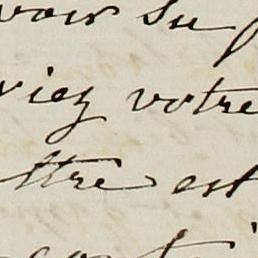 voir su
viez votre
ttre est